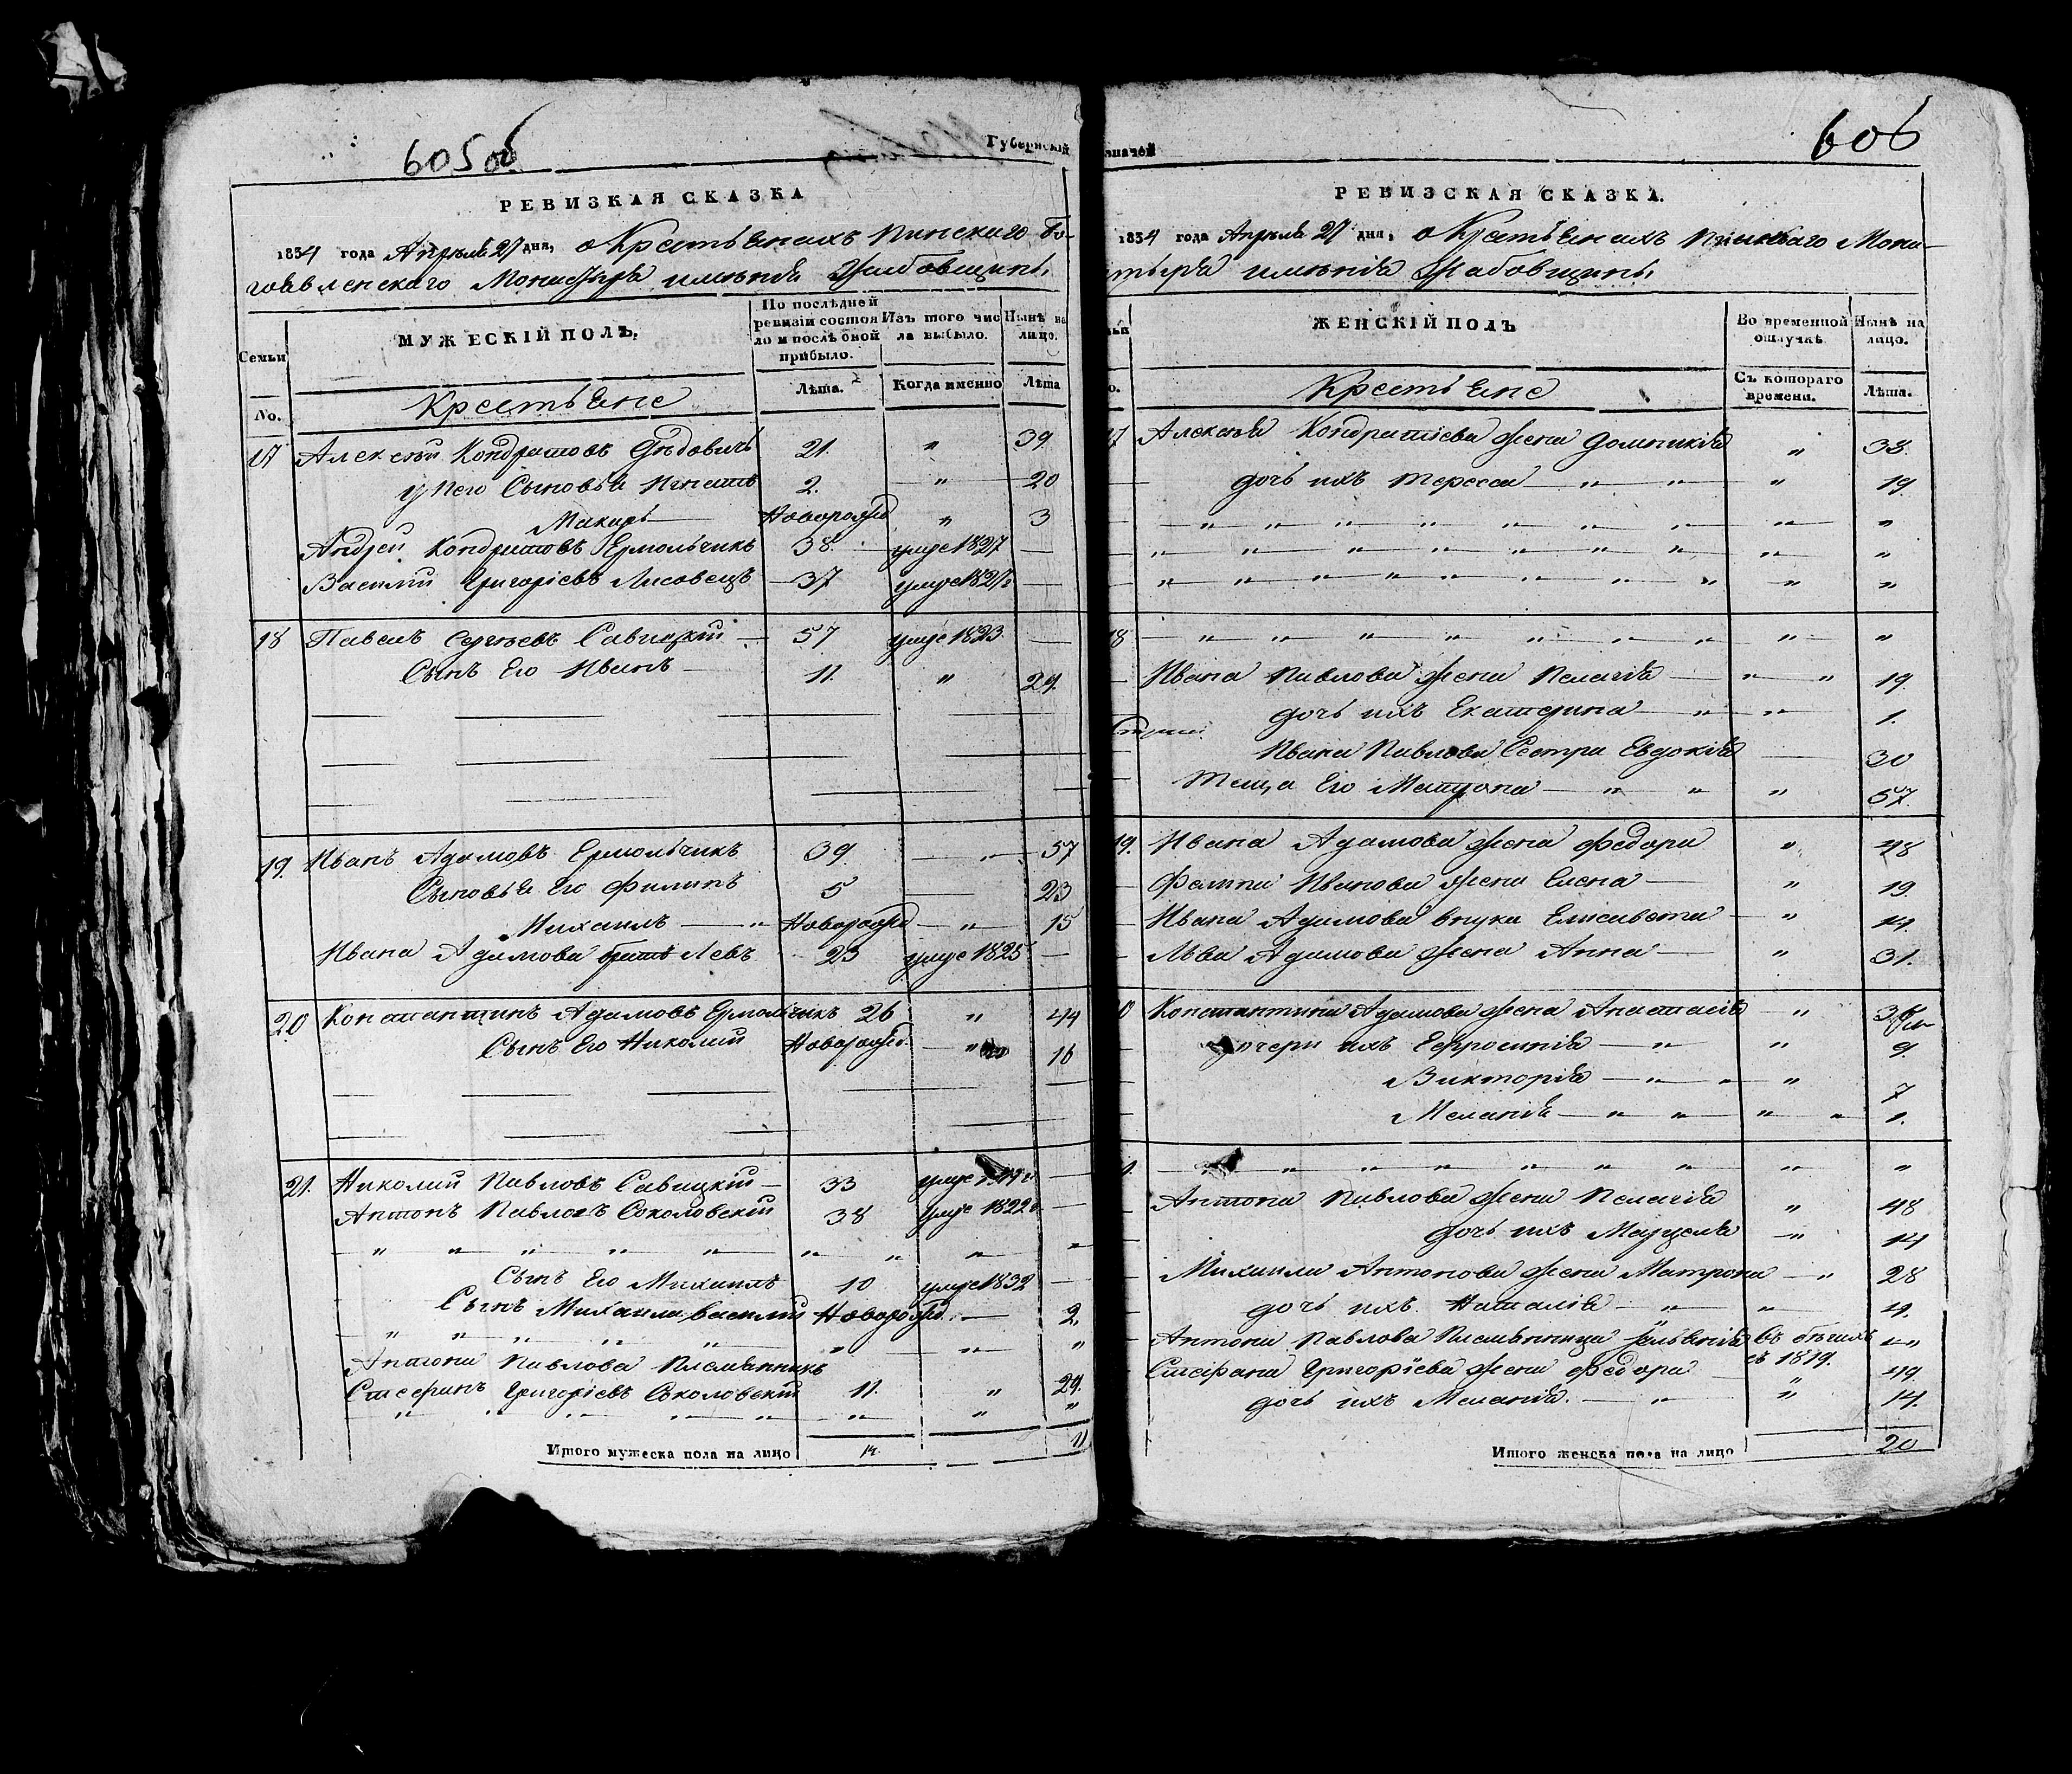 605 об
Губернскій
РЕВИЗКАЯ СКАЗКА
1834 года Апрѣля 27 дня, о Крестьянахъ Пинскаго Бо-
гоявленскаго Монастыря имѣнія Жабовщины
Семьи
МУЖЕСКІЙ ПОЛЪ.
По послѣдней ревизіи состояло и послѣ оной прибыло.
Изъ того числа выбыло.
Нынѣ на лицо.
No.
Крестьяне
Лѣта. Когда именно Лѣта
17 Алексѣй Кондратовъ Дѣдовичъ 21. " 39.
у Него Сыновья Игнатъ 2. " 20
Макаръ Новорожд " 3
Андрей Кондратовъ Ермольчикъ 38. умре 1827 —
Василий Григорiевъ Лисовецъ 37 умре 1827 —
18 Павелъ Сергѣевъ Савицкiй — 57 умре 1823 —
Сынъ Его Иванъ — 11. " 29.
19. Иванъ Адамовъ Ермольчикъ 39. — " — 57
Сыновья Его Филипъ 5 — 23
Михаилъ — " Новорожд — " — 15
Ивана Адамова братъ Левъ 23 умре 1825 —
20 Константинъ Адамовъ Ермольчикъ 26 " 44
Сынъ Его Николай Новорожд. — " 16
21. Николай Павловъ Савицкiй — 33 умре —
Антонъ Павловъ Соколовскiй 38 умре 1822 —
" " " " " " " " "
Сынъ Его Михаилъ 10 умре 1832 —
Сынъ Михаила Василий Новорожд. — 2.
" " " " " " " "
Антона Павлова Племянникъ
Стефанъ Григорiевъ Соколовскiй 11. " 29.
" " " " " " " "
Итого мужеска пола на лицо 14. 11
606
значей
РЕВИЗСКАЯ СКАЗКА.
1834 года Апрѣля 27 дня, о Крестьянахъ Пинскаго Мона-
стыря имѣнія Жабовщины
ЖЕНСКІЙ ПОЛЪ
Во временной отлучкѣ
Нынѣ на лицо.
Крестьяне
Съ котораго времени. Лѣта.
17 Алексѣя Кондратiева жена Домникiя " 38.
дочь ихъ Тересса — " " " 19.
— " " " " " " " " "
" " " " " " " " "
" " " " " " " " " "
18 " " " " " " " " "
Ивана Павлова жена Пелагiя — " " 19.
дочь ихъ Екатерина — " " 1.
Ивана Павлова Сестра Евдокiя — 30
Теща Его Матрона — " " " 57.
19. Ивана Адамова жена Федора " 48
Филипа Иванова жена Елена — " 19.
Ивана Адамова внука Елисавета — " 14.
Льва Адамова жена Анна — " 31.
20 Константина Адамова жена Анастасiя — " 36
дочери ихъ Ефросинiя — " " 9.
Викторiя — " " " 7
Меланiя — " " " " 1.
21. — " " " " " " " " "
Антона Павлова жена Пелагiя " 48
дочь ихъ Марцеля — " 14
Михаила Антонова жена Матрона — " 28
дочь ихъ Наталiя — " " 4.
Антона Павлова Племянница въ бѣгахъ
съ 1819. "
Стефана Григорiева жена Федора " 49.
дочь ихъ Меланiя. — " " 14.
Итого женска пола на лицо 20